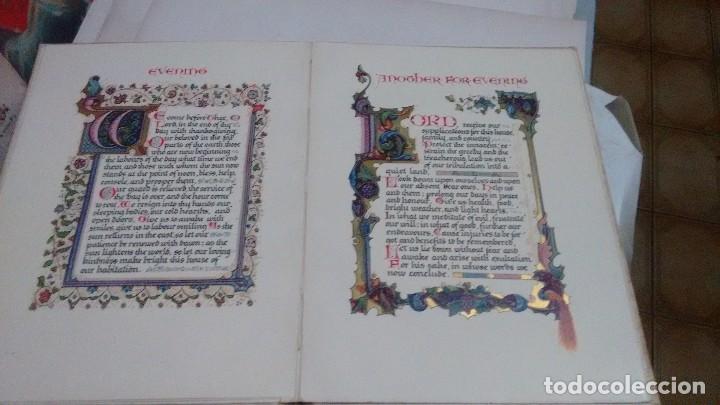 EVENING
We come before Thee, O
Lord in the end of thy
day with thanksgiving.
Our beloved in the far
parts of the earth those
who are now beginning
the labours of the day what time we end
them, and those with whom the sun now
stands at the point of noon, bless, help,
console, and prosper them.
Our guard is relieved, the service of
the day is over, and the hour come
to rest. We resign into thy hands our
sleeping bodies, our cold hearths, and
open doors. Give us to awake with
smiles, give us to labour smiling. As the
sun returns in the east, so let our
patience be renewed with dawn; as the
sun lightens the world, so let our loving
kindness make bright this house of
our habitation.
ANOTHER FOR EVENING
LORD, receive our
supplications for this house,
family, and country.
Protect the innocent, re-
strain the greedy and the
treacherous, lead us out
of our tribulation into a
quiet land.
Look down upon ourselves and upon
our absent dear ones. Help us
and them; prolong our days in peace
and honour. Give us health, food,
bright weather, and light hearts.
In what we meditate of evil, frustrate
our will; in what of good, further our
endeavours. Cause injuries to be for-
got and benefits to be remembered.
Let us lie down without fear and
awake and arise with exultation.
For his sake, in whose words we
now conclude.
todocoleccion
todocoleccion.net